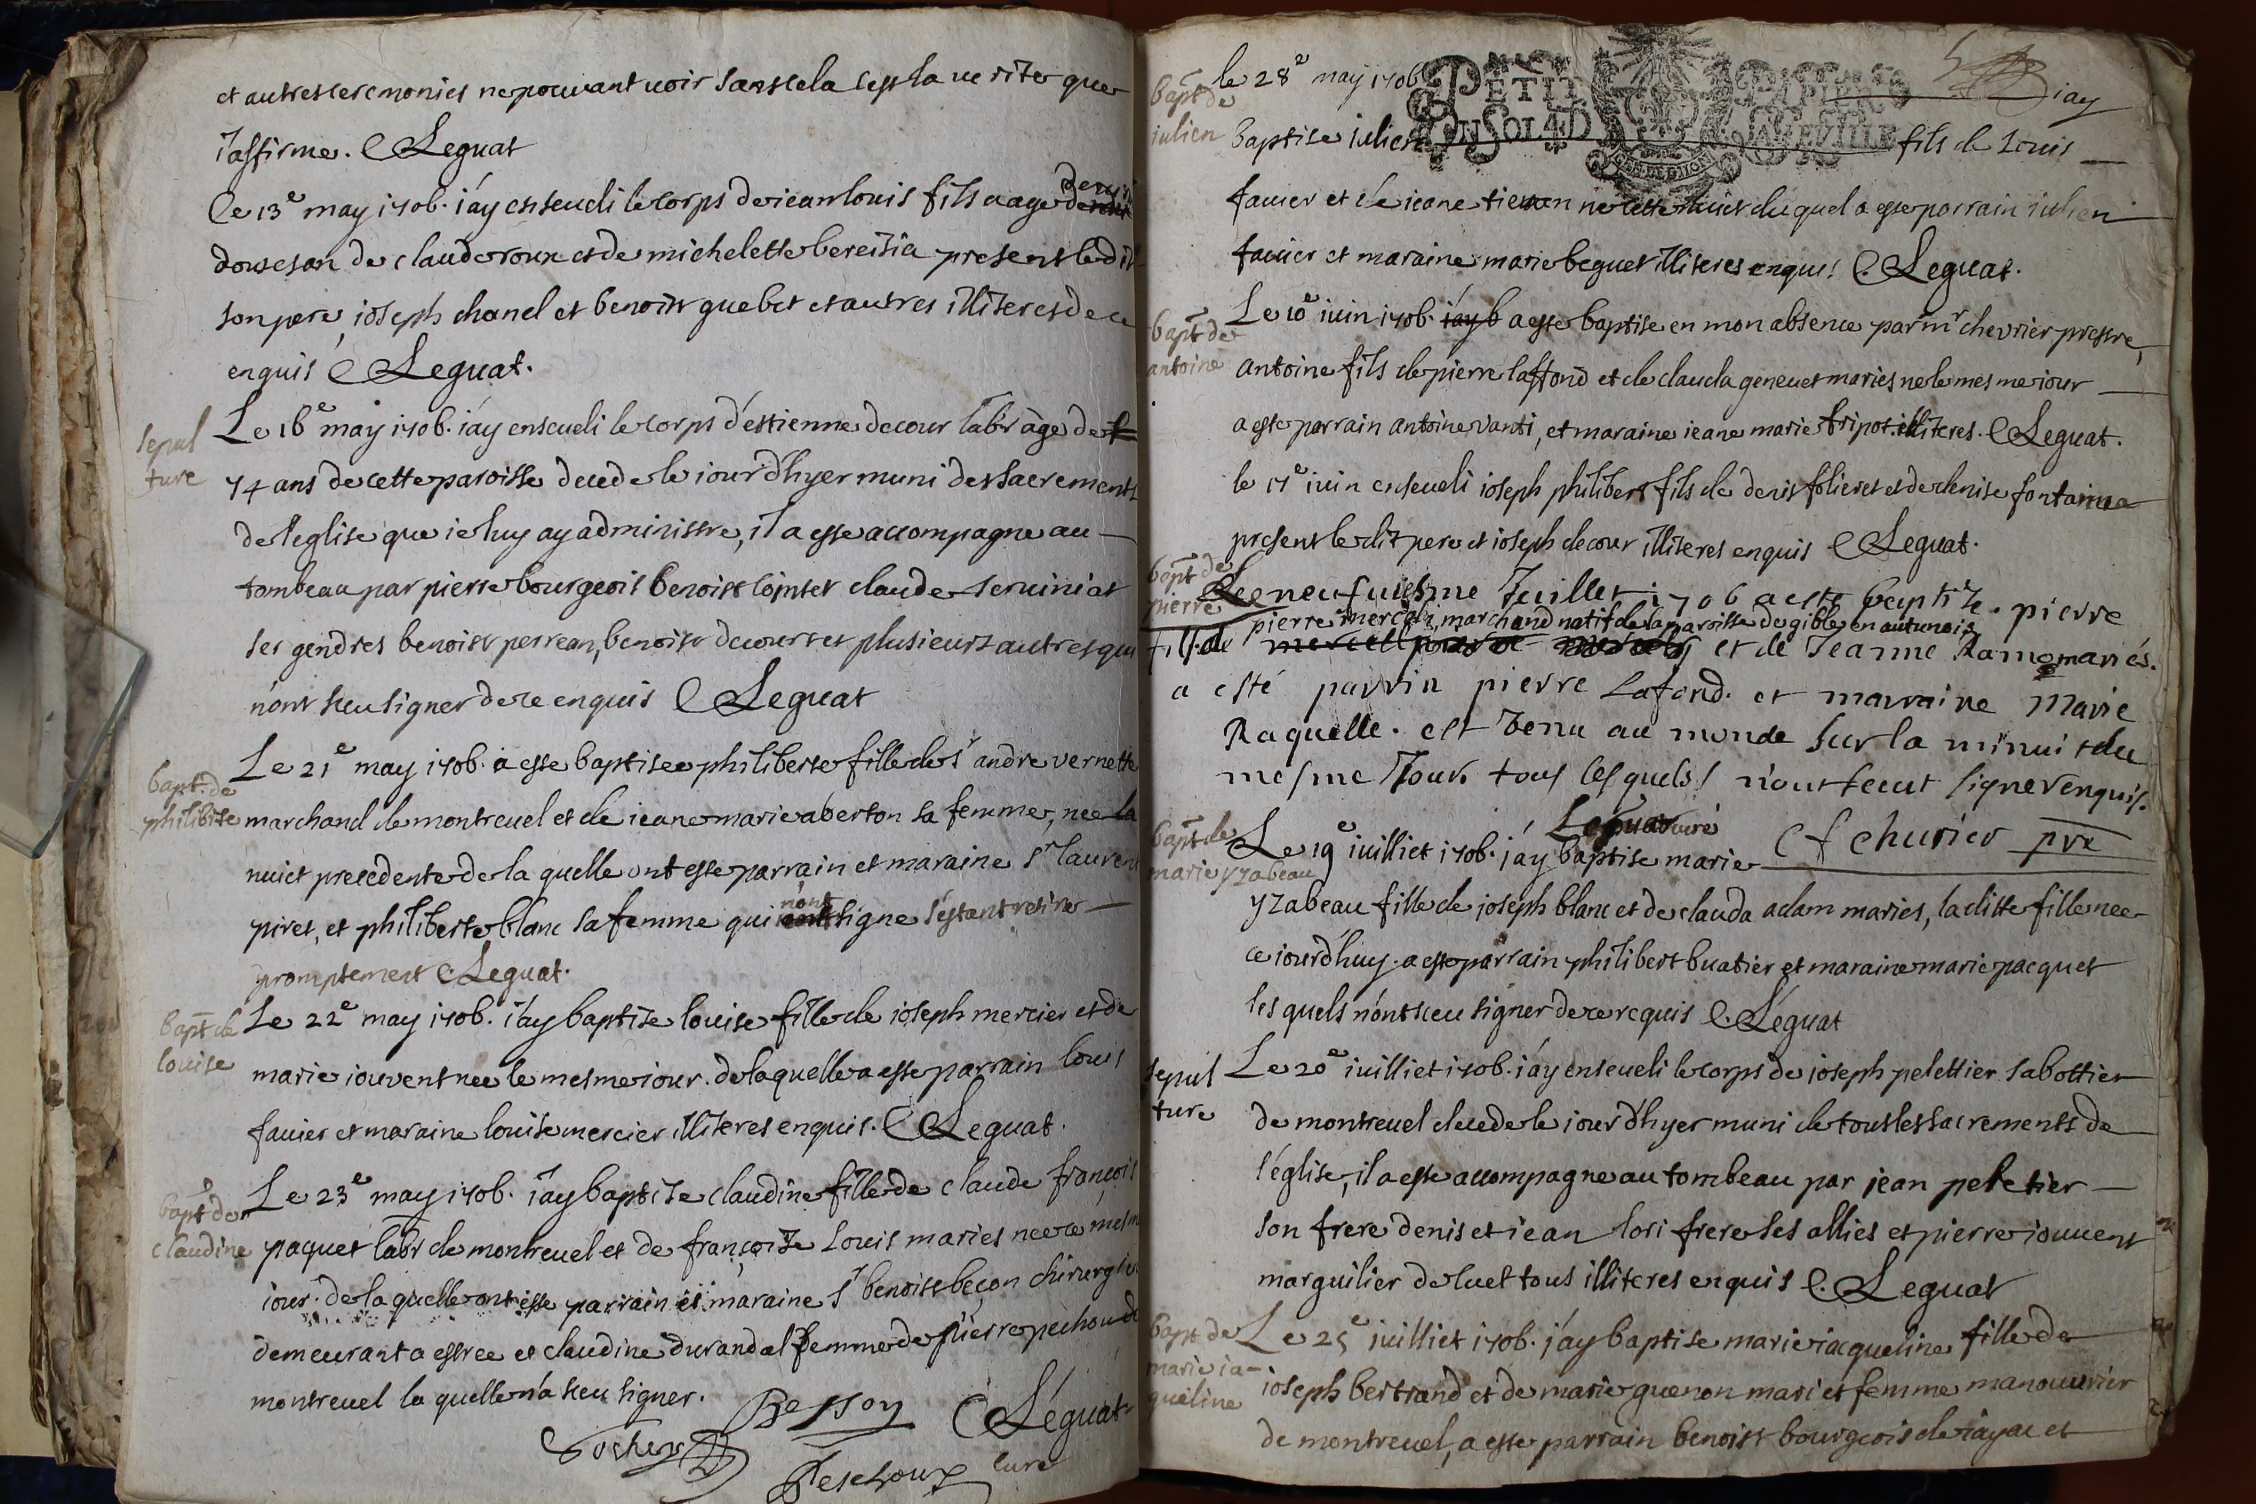 et autres ceremonies ne pouvant voir sans cela cest la verite que
i'affirme. C Leguat
Le 13e may 1706. i'ay enseueli le corps de iean louis fils aage
de claude roux et de michelette presents ledit
son pere, ioseph chanel et benoist guebet et autres illiteres de ce
enquis C Leguat.
sepul
ture
Le 16e may 1706. i'ay enseueli le corps d'estienne decour labr age de
74 ans de cette paroisse decede le iour d'hyer muni des sacrements
de l'eglise que ie luy ay administre, il a este accompagne au
tombeau par pierre bourgeois benoist cointet claude seruiniat
ses gendres benoist perrean, benoist decour et plusieurs autres qui
n'ont sceu signer de ce enquis C Leguat
bapt. de
philibte
Le 21e may 1706. a este baptisee philiberte fille de sr andre vernette
marchand de montreuel et de ieane marie aberton sa femme, nee la
nuict precedente de la quelle ont este parrain et maraine sr laurent
piret, et philiberte blanc sa femme qui n'ont signe s'estant retires
promptement C. Leguat.
bapt de
louise
Le 22e may 1706. i'ay baptise louise fille de ioseph mercier et de
marie iouvent nee le mesme iour. de laquelle a este parrain louis
fauier et maraine louise mercier illiteres enquis. C Leguat.
bapt de
claudine
Le 23e may 1706. i'ay baptise claudine fille de claude françois
paquet labr de montreuel et de françoise Louis maries nee ce mesme
iour. de la quelle ont este parrain et maraine sr benoist beçon chirurgien
demeurant a estree et claudine durandal femme de pierre pechoud
montreuel la quelle n'a sceu signer.
Besson C Leguat
curé
le 28e may 1706 iay
PETIT PAPIER
UN SOL 4 D
bapt de
iulien
baptise iulien fils de Louis
fauier et de ieane tienon ne cette nuict duquel a este parrain iulien
fauier et maraine marie beguet illiteres enquis C. Leguat.
bapt de
antoine
Le 10e iuin 1706. i'ay b a este baptise en mon absence par mr chevrier prestre,
antoine fils de pierre laffond et de clauda geneuet maries ne le mesme iour
a este parrain antoine vanti, et maraine ieane marie fripot illiteres. C Leguat.
le 17e iuin enseueli ioseph philibert fils de denis folieret et de denise fontaine
present ledit pere et ioseph decour illiteres enquis C Leguat.
bapt de
pierre
Le neufuiesme Juillet 1706 a esté baptizé pierre
pierre mercely, marchand natif de la paroisse de gibles en autunois
fils de et de Jeanne Ramo mariés.
a esté parrin pierre Lafond. et marraine Marie
Raquelle. est venu au monde sur la minuit du
mesme Jour. tous lesquels n'ont sceut signer enquis.
Leguat curé
C f chevrier pre
bapt de
marie yzabeau
Le 19e iuilliet 1706. i'ay baptise marie
yzabeau fille de ioseph blanc et de clauda adam maries, la ditte fille nee
ce iourd'huy. a este parrain philibert buatier et maraine marie pacquet
lesquels n'ont sceu signer de ce requis C. Leguat
sepul
ture
Le 20e iuilliet 1706. i'ay enseueli le corps de ioseph pelettier sabottier
de montreuel decede le iour d'hyer muni de tous les sacrements de
l'église, il a este accompagne au tombeau par jean peletier
son frere denis et iean lori frere ses allies et pierre iouvent
marguilier de luet tous illiteres enquis C. Leguat
bapt de
marie ia-
queline
Le 25e juilliet 1706. j'ay baptise marie iacqueline fille de
ioseph bertrand et de marie guenon mari et femme manouurier
de montreuel, a este parrain benoist bourgeois de iayac et